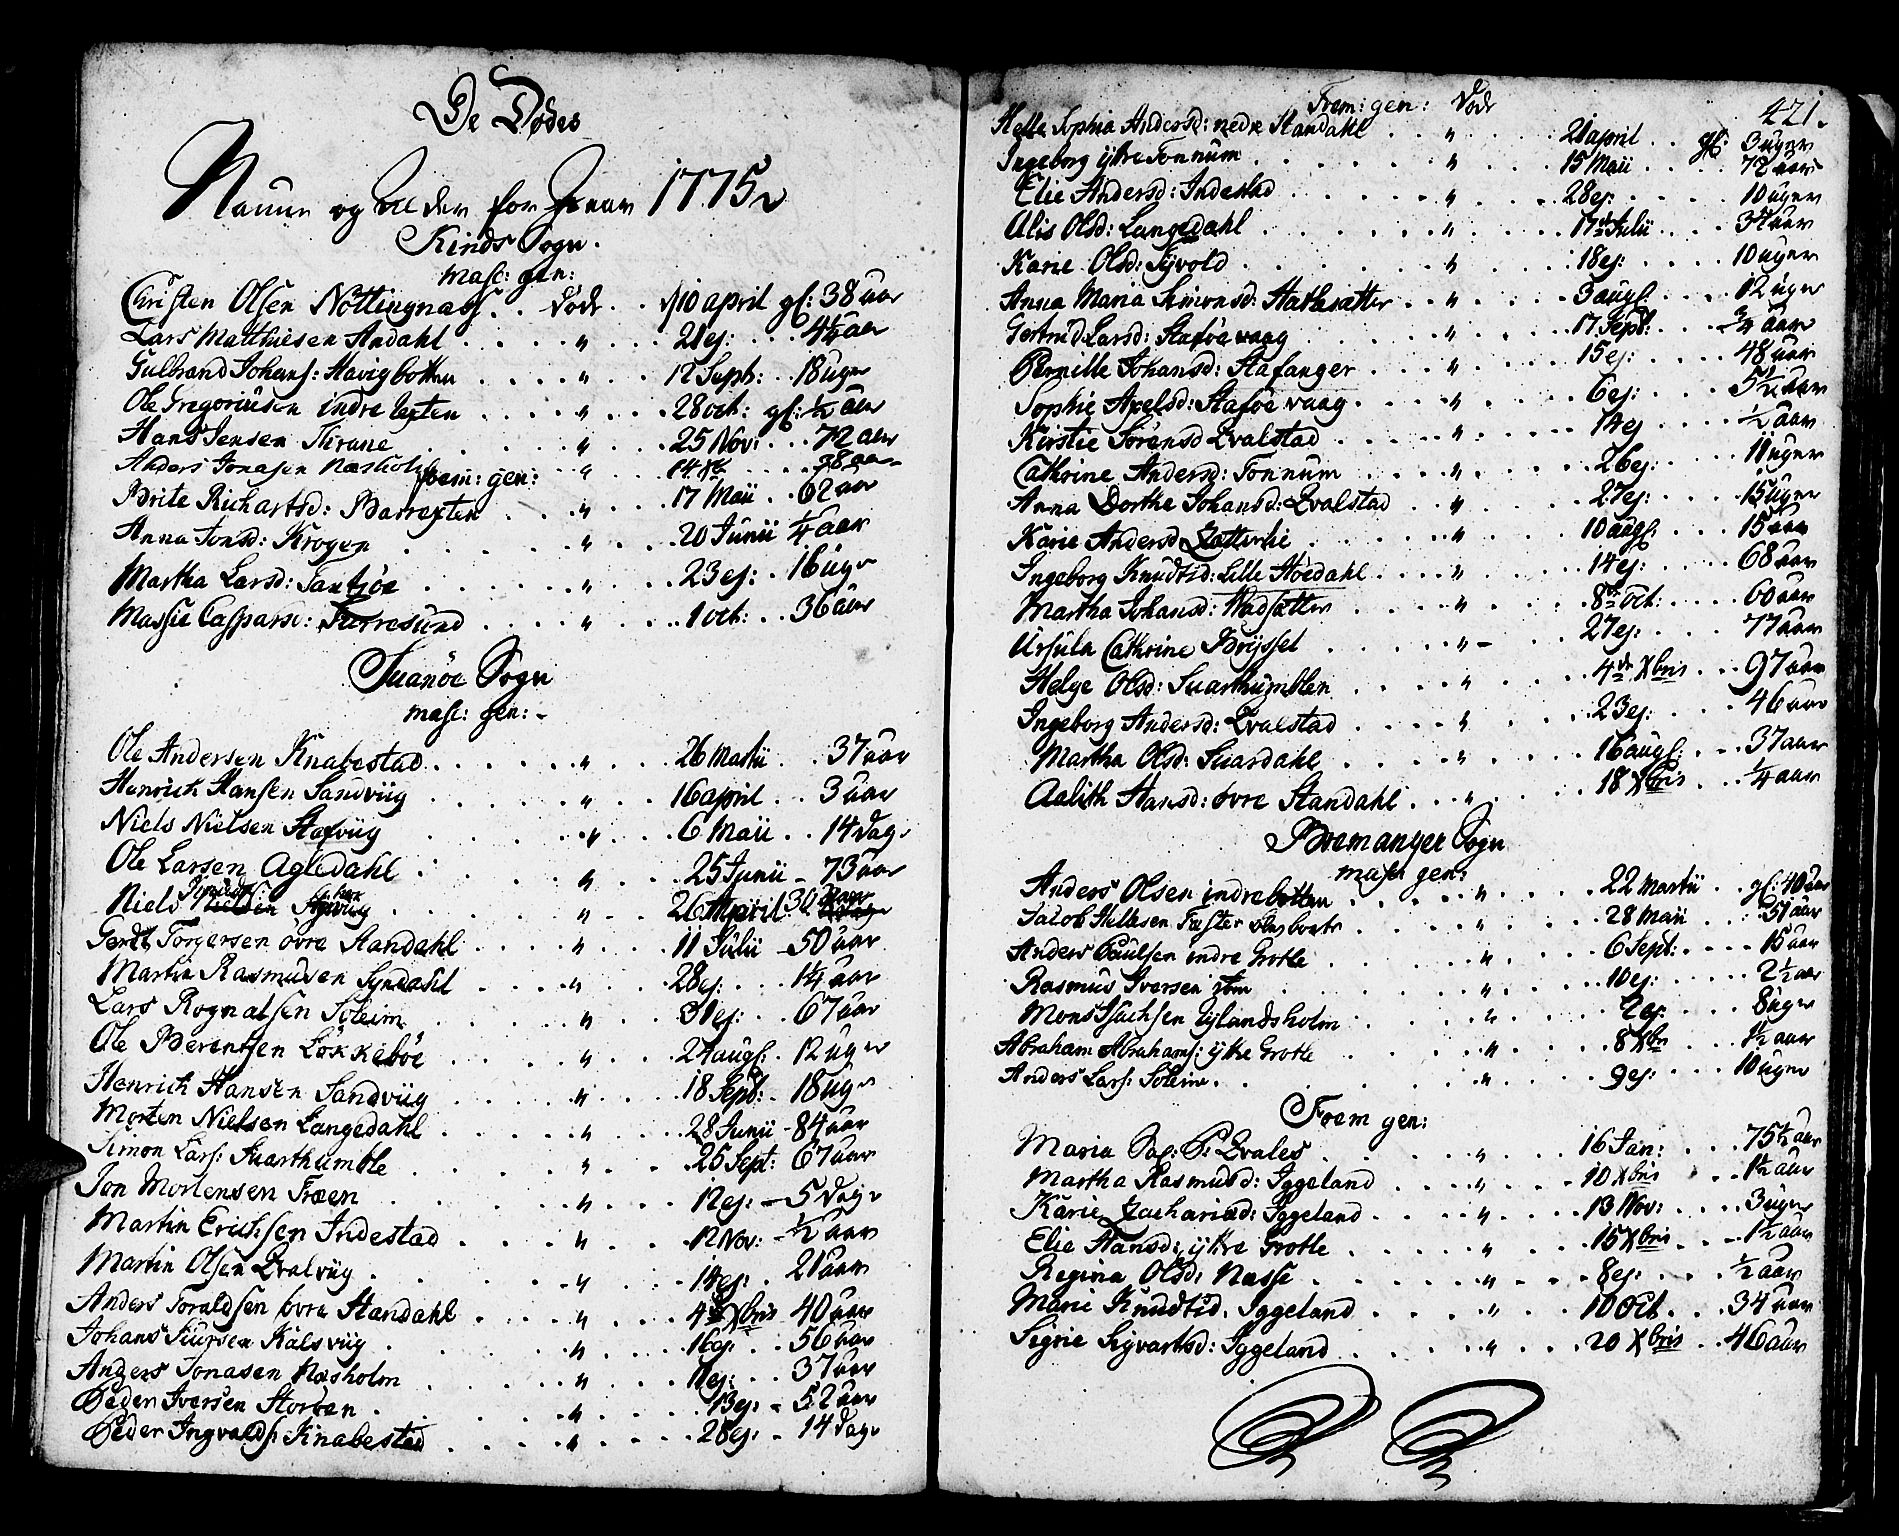 De Dødes
Naune og Alder for Aaar 1775
Kinds Sogn.
masc: gen:
Christen Olsen Nottingnæss . . døde . . d 10 april gl: 38 aar
Lars Matthiesen Andahl . . . . " . . . 21 ej: . . . 4½ aar
Gulbrand Johans: Havigbotten . . . . " . . . 12 Sept: . . 18 uger
Ole Gregoriusen indre lexten . . . . " . . . 28 oct: gl: ½ aar
Hans Jensen Thrane . . . . " . . . 25 Nov: . . . 72 aar
Anders Jonasen Næsholm " . . . 14 Xbr . . . . 38 aar
foem: gen:
Brite Richartsd: Barrexten . . " . . . 17 Maii . . 62 aar
Anna Jonsd: Krogen . . . . " . . . 20 Junii ¼ aar
Martha Larsd: Santøe . . . . " . . . 23 ej: . . 16 uger
Massie Caspersd: Furresund . . . . " . . . 1 oct: . . 36 aar
Suanöe Sogn
masc: gen: -
Ole Andersen Knabestad . . . . " . . . 26 Martii . . 37 aar
Henrich Hansen Sandviig . . . . " . . . 16 april . . . 3 aar
Niels Nielsen Stafviig . . . . " . . . 6 Maii . . 14 Dage
Ole Larsen Agledahl : . . . " . . . 25 Junii - 73 aar
Niels . . . . " - . . 26 April 30
Gerdt Torgersen övre Standahl . . . . " . . . 11 Julii - 50 aar
Martin Rasmusen Syndahl . . . . " . . . 28 ej: . . . 1¼ aar
Lars Rognalsen Soleim . . . . " . . . 31 ej: . . 67 aar
Ole Berentsen Lökkeböe . . . . " . . . 24 augs: . 12 uger
Henrich Hansen Sandviig . . . . " . . . 18 Sept: . 18 uger
Morten Nielsen Langedahl . . . . " . . . 28 Junii - 84 aar
Simon Lars: Suarthumble . . . . " . . . 25 Sept: 67 aar
Jon Mortensen Træen . . . . " . . . 12 ej: - 5 Dage
Martin Erichsen Indestad . . . . " . . . 12 Nov: - ½ aar
Martin Olsen Qvalviig . . . . " . . . 14 ej: . 21 aar
Anders Toraldsen övre Standahl . . . . " . . . 4de Xbris 40 aar
Johans Siursen Kalsviig . . . . " . . . 16 ej: . . 56 aar
Anders Jonasen Næsholm . . . . " . . . 11 ej: . . 37 aar
Peder Iversen Storøen . . . . " . . . 13 ej: - 52 aar
Peder Ingvalds: Knabestad . . . . " . . . 28 ej: - 14 Dage
421.
Foem: gen: Døde
Helle Sophia Andersd: nedre Standahl . . " . . . . 21 april . . gl: 3 uger
Ingeborg ytre Tonnum . . . . . " . . . . 15 Maii . . . . 72 aar
Elie Andersd: Indestad . . . . . " . . . . 28 ej: . . . . 10 uger
Alis Olsd: Langedahl . . . . . " . . . . 17de Julii . . . . 37 aar
Karie Olsd: Syvold . . . . . " . . . . 18 ej: . . . . 10 uger
Anna Maria Simonsd: Stathsætter . . " . . . . 3 augs: . . . . 12 uger
Gertrud Larsd: Staføe vaag . . . . " . . . . 17 Sept: . . . ¾ aar
Pernille Johansd: Stafanger . . . . " . . . . 15 ej: . . . . 48 aar
Sophie Axelsd: Staføe vaag . . . . " . . . . 6 ej: . . . . 5½ aar
Kirstie Sorensd Qvalstad . . . . " . . . . 14 ej . . . . ½ aar
Cathrine Andersd: Tonnum . . . . " . . . . 26 ej: . . . . 11 uger
Anna Dorthe Johansd: Qvalstad . . " . . . . 27 ej: . . . . 15 uger
Karie Andersd Zætterlie . . . . " . . . . 10 augs: . . . . 15 aar
Ingeborg Knudtsd: Lille Høedahl . . . " . . . . 14 ej: . . . . 68 aar
Martha Johansd: Hadsætter . . . . " . . . . 8de Oct: . . . . 60 aar
Ursula Cathrine Bryssel . . . . " - . . . . 27 ej: . . . . 77 aar
Helge Olsd: Suarthumblen . . . . " . . . . 4de Xbris . . 97 aar
Ingeborg Andersd: Qvalstad . . . . " . . . . 23 ej: . . . . 46 aar
Martha Olsd: Suardahl . . . . " . . . . 16 augs: . . 37 aar
Aalith Hansd: övre Standahl . . . " . . . . 18 Xbris . . ¼ aar
Bremanger Sogn
masc gen:
Anders Olsen indrebotten . . . . " . . . . 22 Martii . . gl: 40 aar
Jacob . . . . " . . . . 28 Maii . . . 51 aar
Anders Paulsen indre Grotle . . . . " . . . . 6 Sept: . . . . 15 aar
Rasmus Iversen . . . . " . . . . 10 ej: . . . . 2½ aar
Mons Isachsen Rylandsholm . . . . " . . . . 2 ej: . . . . 8 uger
Abraham Abrahams: ytre Grotle . . . . " . . . . 8 Xbris . . . 1½ aar
Anders Lars: Soleim . . . . " . . . . 9 ej: . . . . 10 uger
Foem gen:
Maria Sal: P: Qvales . . . . " . . . . 16 Jan: . . . 75½ aar
Martha Rasmusd: Iggeland . . . . " . . . . 10 Xbris . . . 1½ aar
Karie Zachariæd: Iggeland . . . . " . . . . 13 Nov: . . . 3 uger
Elie Hansd: ytre Grotle . . . . " . . . . 15 Xbris . . . 1½ aar
Regina Olsd: Næsse . . . . " . . . . 8 ej: . . . ½ aar
Marie Knudtsd. Iggeland . . . . " . . . . 10 Oct. . . . 34 aar
Sigrie Sigvartsd: Iggeland . . . . " . . . . 20 Xbris . . 46 aar